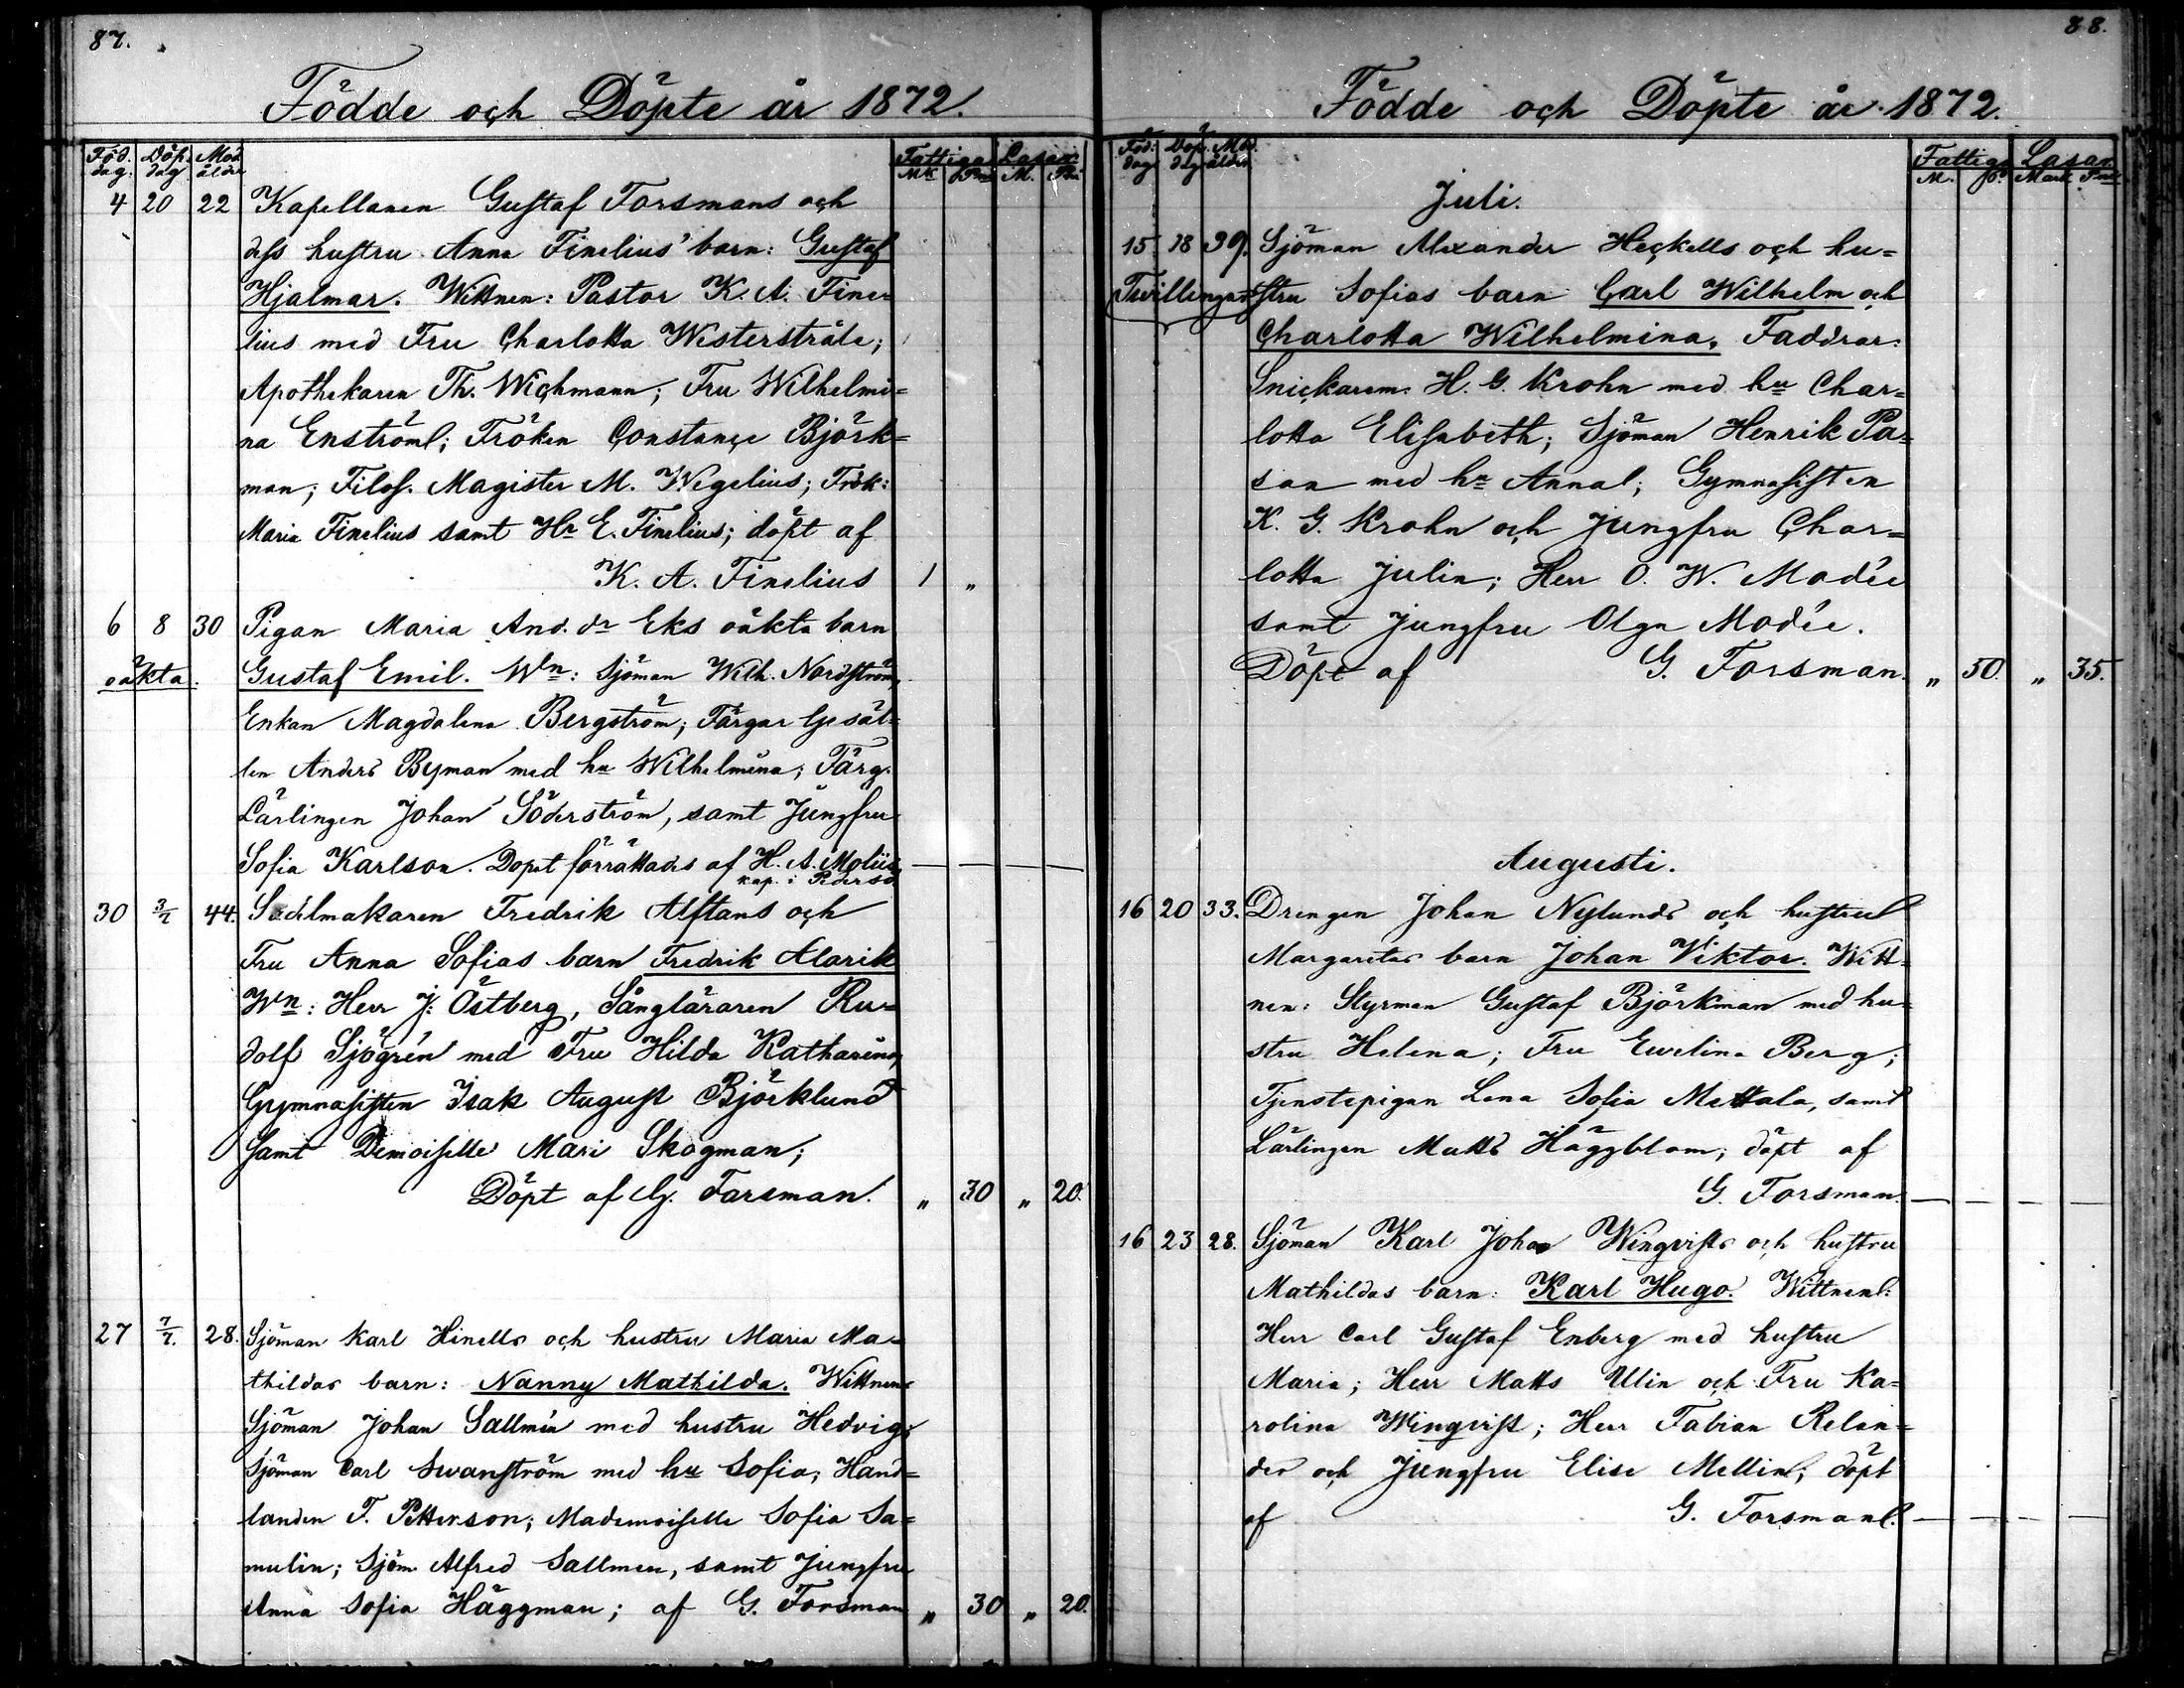 87.
Födde och Döpte år 1872.
Föd. dag. Döp. dag Mod. ålder Fattiga Lasar.
Mk Pni M. Pni
4 20 22 Kapellanen Gustaf Forsmans och
dess hustru Anna Finelius' barn: Gustaf
Hjalmar. Wittnen: Pastor K. A. Fine-
lius med Fru Charlotta Westerstråle;
Apothekaren Th. Wichmann; Fru Wilhelmi-
na Enström; Fröken Constançe Björk-
man; Filos. Magister M. Wegelius; Frök:
Maria Finelius samt Hr E. Finelius; döpt af
K. A. Finelius 1 "
6 8 30 Pigan Maria And. dr Eks oäkta barn
oäkta. Gustaf Emil. Wn: Sjöman Wilh. Nordström,
Enkan Magdalena Bergström; Färgar Gesäl-
len Anders Byman med hu Wilhelmina; Färg.
Lärlingen Johan Söderström, samt Jungfru
Sofia Karlson. Dopet förrättades af H. A. Moliis
kap. i Pedersö
30 3/7 44. Sadelmakaren Fredrik Alftans och
Fru Anna Sofias barn Fredrik Alarik
Wn: Herr J. Östberg, Sångläraren Ru-
dolf Sjögrén med Fru Hilda Katharina,
Gymnasisten Isak August Björklund
samt Demoiselle Mari Skogman;
Döpt af G. Forsman. " 30 " 20.
27 7/7. 28. Sjöman Karl Hinells och hustru Maria Ma-
thildas barn: Nanny Mathilda. Wittnen
Sjöman Johan Sallmén med hustru Hedvig,
Sjöman Carl Swanström med hu Sofia; Hand-
landen F. Petterson; Mademoiselle Sofia Sa-
mulin; Sjöm. Alfred Sallmen, samt Jungfru
Anna Sofia Häggman; af G. Forsman " 30 " 20.
88.
Födde och Döpte år 1872.
Föd: dag Döp. dag Mod. ålder. Fattiga Lasar
M. P. Mark Pni
Juli.
15 18 39. Sjöman Alexander Heckells och hu-
Twillingar stru Sofias barn Carl Wilhelm och
Charlotta Wilhelmina. Faddrar:
Snickarem. H. G. Krohn med hu Char-
lotta Elisabeth; Sjöman Henrik Pa-
san med hu Anna; Gymnasisten
K. G. Krohn och Jungfru Char-
lotta Julin; Herr O. W. Modée
samt Jungfru Olga Modée.
Döpt af G. Forsman. " 50. " 35.
Augusti.
16 20 33. Drengen Johan Nylunds och hustru
Margaretas barn Johan Viktor. Witt-
nen: Styrman Gustaf Björkman med hu-
stru Helena; Fru Ewelina Berg;
Tjenstepigan Lena Sofia Mettala, samt
Lärlingen Matts Häggblom; döpt af
G. Forsman.
16 23 28. Sjöman Karl Johan Wingvists och hustru
Mathildas barn: Karl Hugo. Wittnen:
Herr Carl Gustaf Enberg med hustru
Maria; Herr Matts Ulin och Fru Ka-
rolina Wingvist; Herr Fabian Relan-
der och Jungfru Elise Mellin; döpt
af G. Forsman.